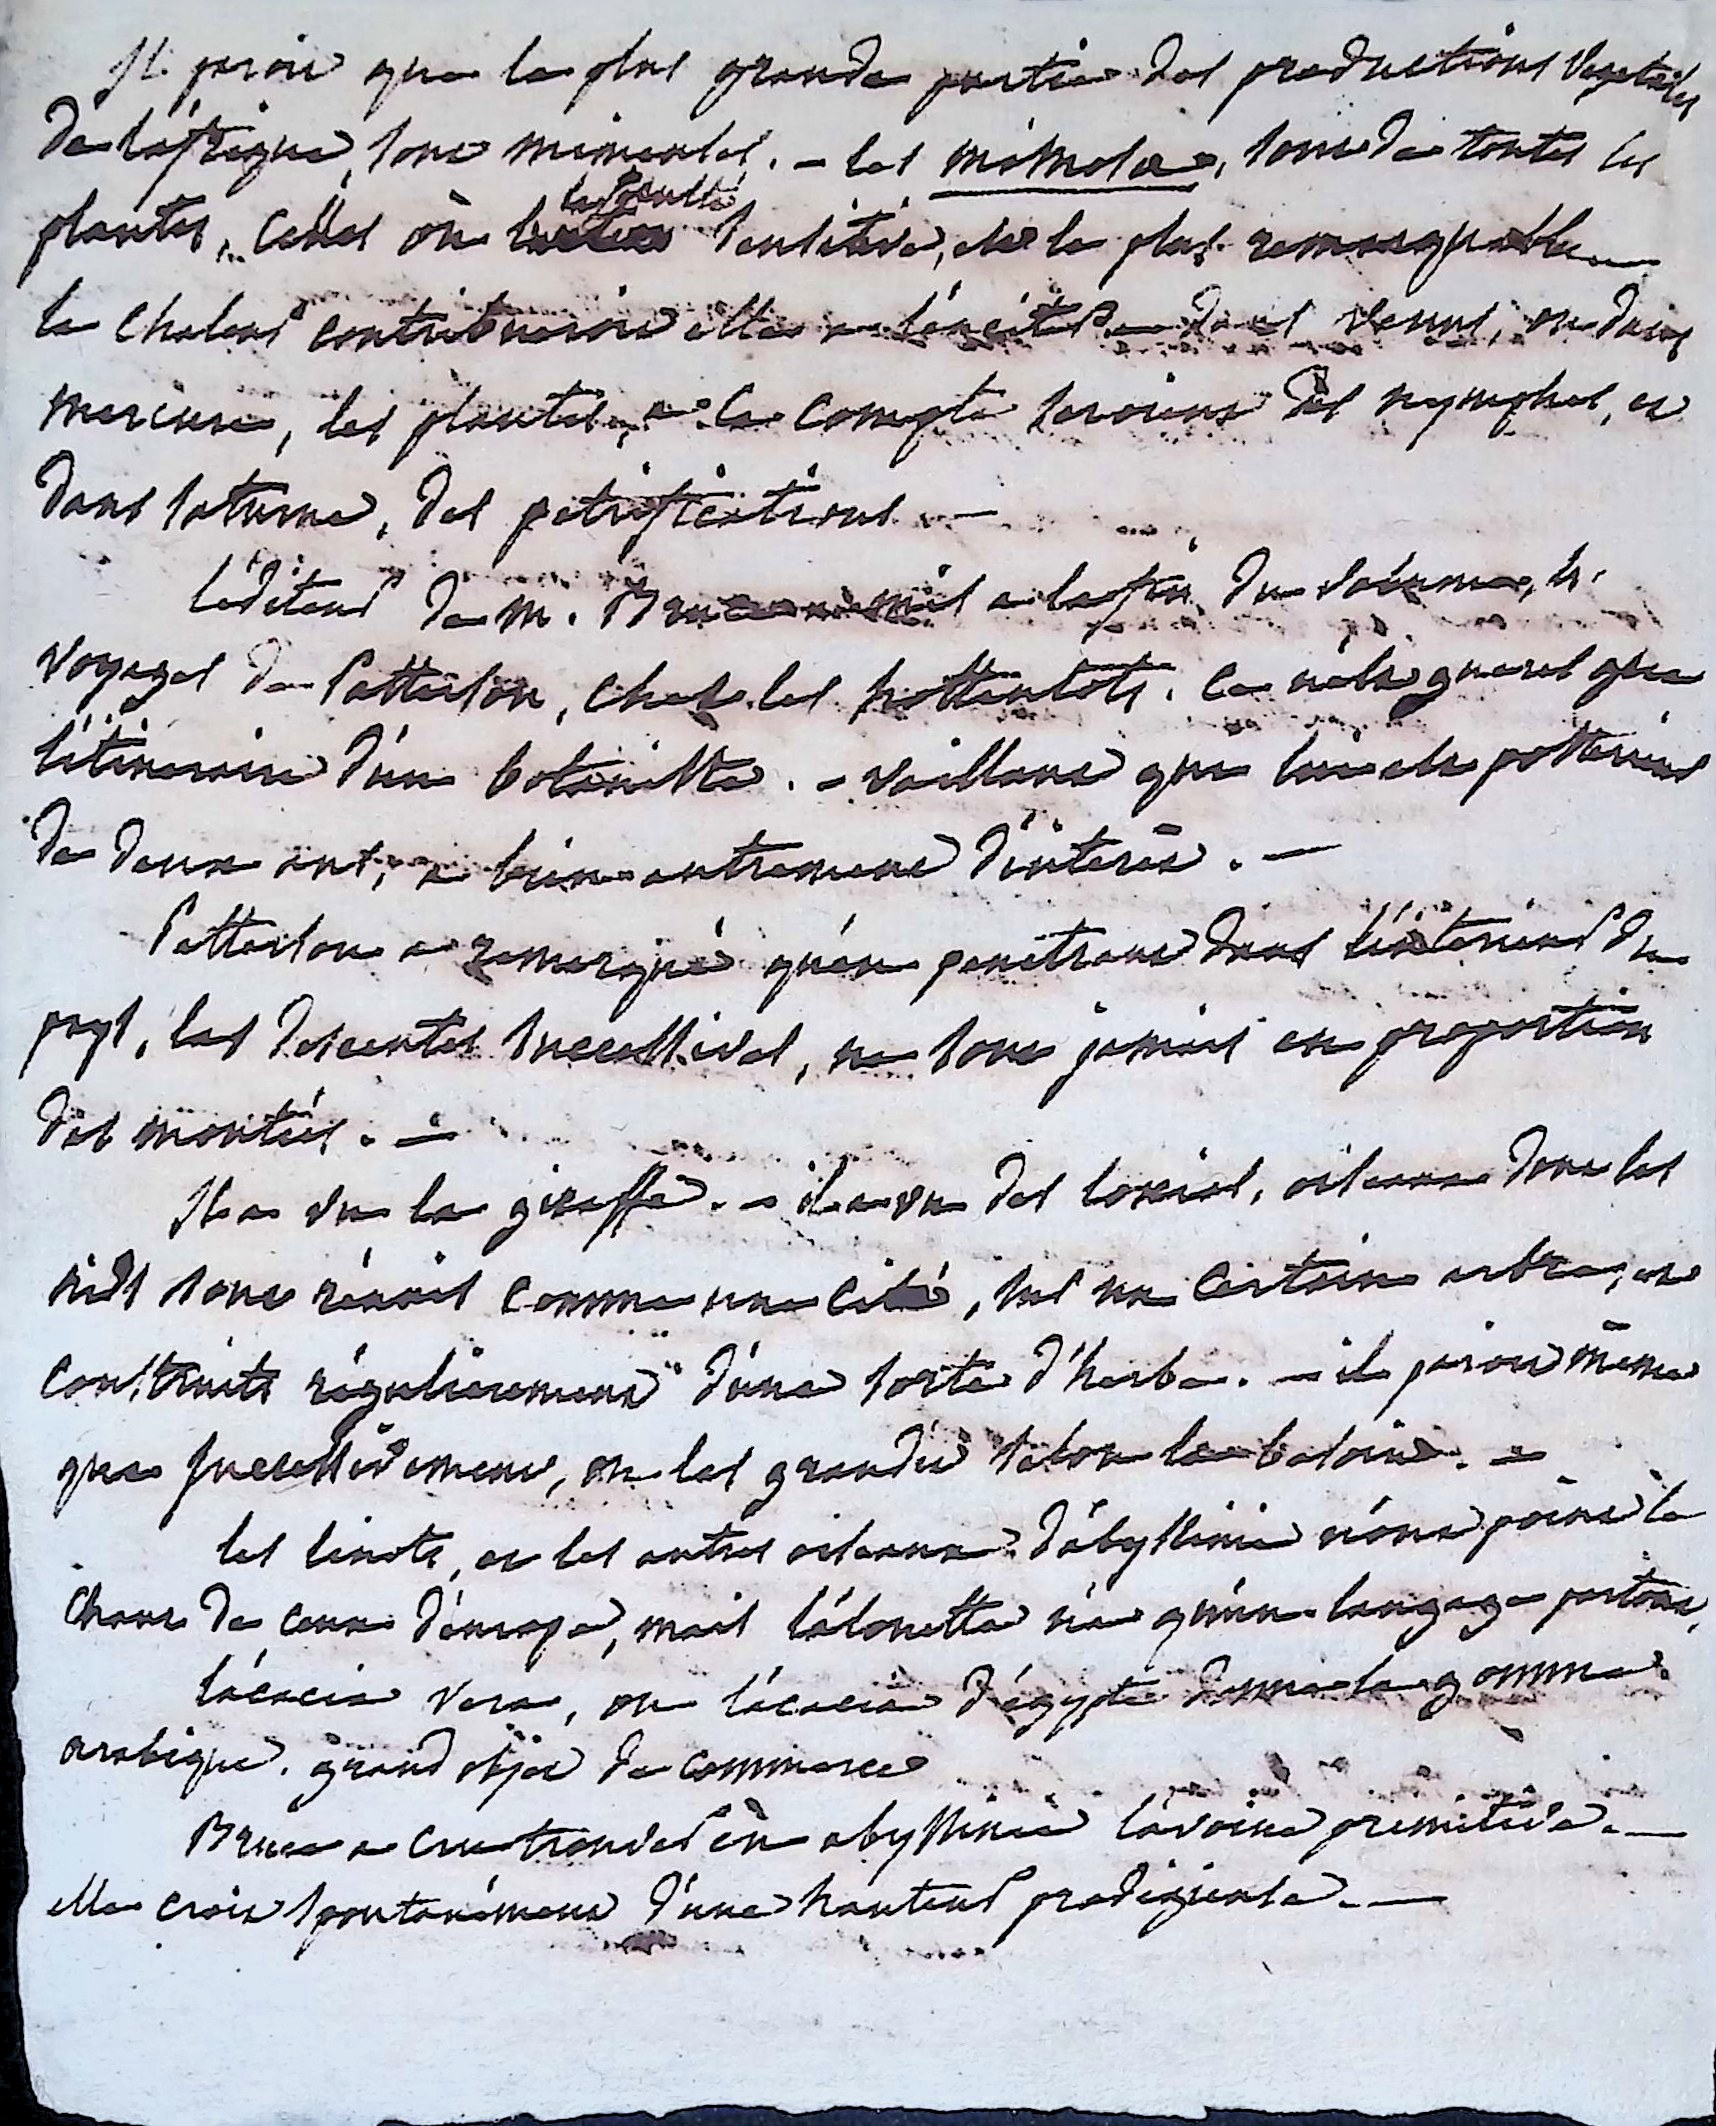 Il paroit que la plus grande partie des productions vegetales
de l'afrique, sont mimeuses. – les mimosa, sont de toutes les
plantes, celles où la faculté sensitive, est la plus remarquable
la chaleur contribueroit elle a l'exciter – dans venus, ou dans
mercure, les plantes, a ce compte seroient des nymphes, et
dans saturne, des petrifications –
l'editeur de M. Bruce a mis a la fin du volume, les
voyages de Patterson, chez les hottentots. ce n'est gueres que
l'itineraire d'un botaniste. – vaillant qui lui est posterieur
de deux ans, a bien autrement d'interêt. –
Patterson a remarqué qu'en penetrant dans l'interieur du
pays, les descentes successives, ne sont jamais en proportion
des montées. –
Il a vu la giraffe. – il a vu des loxias, oiseaux dont les
nids sont réunis comme une cité, sur un certain arbre, et
construits régulierement d'une sorte d'herbe. – il paroit même
que successivement, on les grandit selon le besoin. –
les linots, et les autres oiseaux d'abyssinie n'ont point le
chant de ceux d'europe, mais l'alouette n'a qu'un langage partout,
l'acacia vera, ou l'acacia d'égypte donne la gomme
arabique. grand objet de commerce
Bruce a cru trouver en abyssinie l'avoine primitive. –
elle croit spontanément d'une hauteur prodigieuse. –